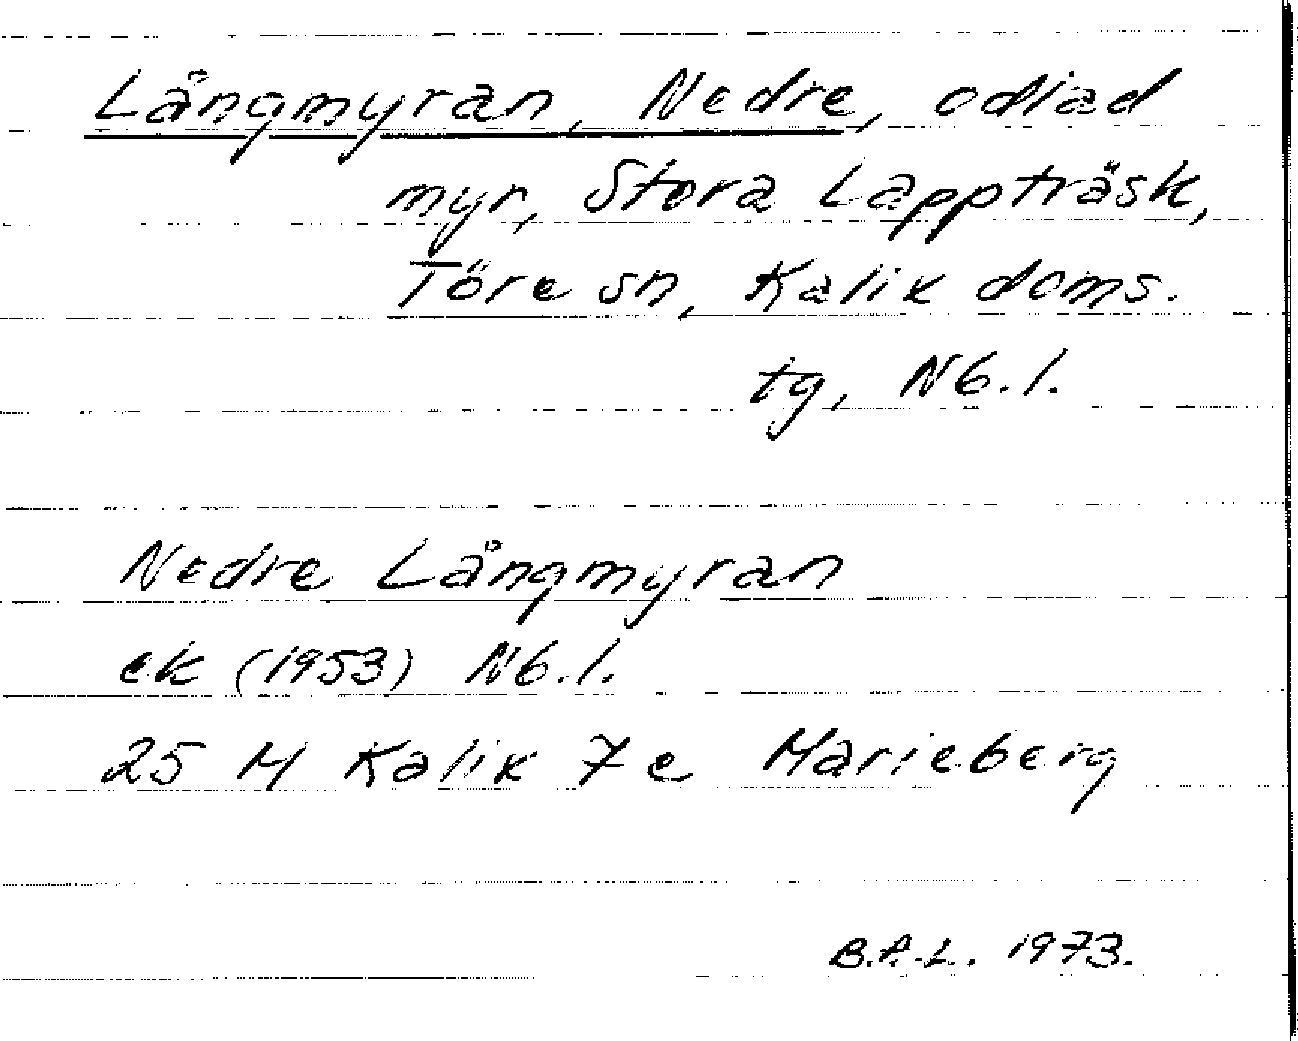 Långmyran, Nedre, odlad
myr, Stora Lappträsk,
Töre sn, Kalix doms.
tg, Nb.l.
Nedre Långmyran
ek (1953) Nb.l.
25 M Kalix 7e Marieberg
B.A.L. 1973.